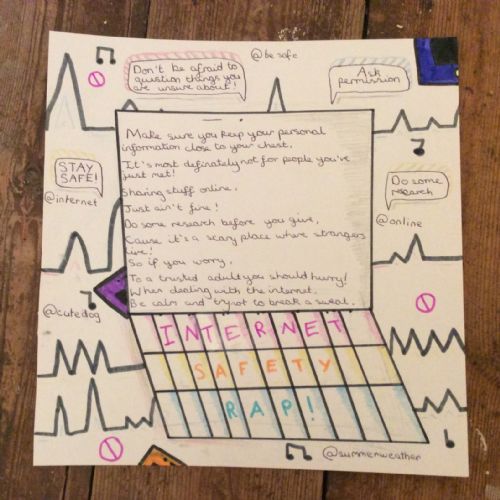 @be safe
Don't be afraid to
question things you
are unsure about!
Ask
permission
STAY
SAFE!
@internet
Do some
research
@online
Make sure you keep your personal
information close to your chest,
It's most definately not for people you've
just met!
Sharing stuff online,
Just ain't fine!
Do some research before you give,
Cause it's a scary place where strangers
live!
So if you worry,
To a trusted adult you should hurry!
When dealing with the internet,
Be calm and try not to break a sweat.
@cutedog
INTERNET
SAFETY
RAP!
@summerweather